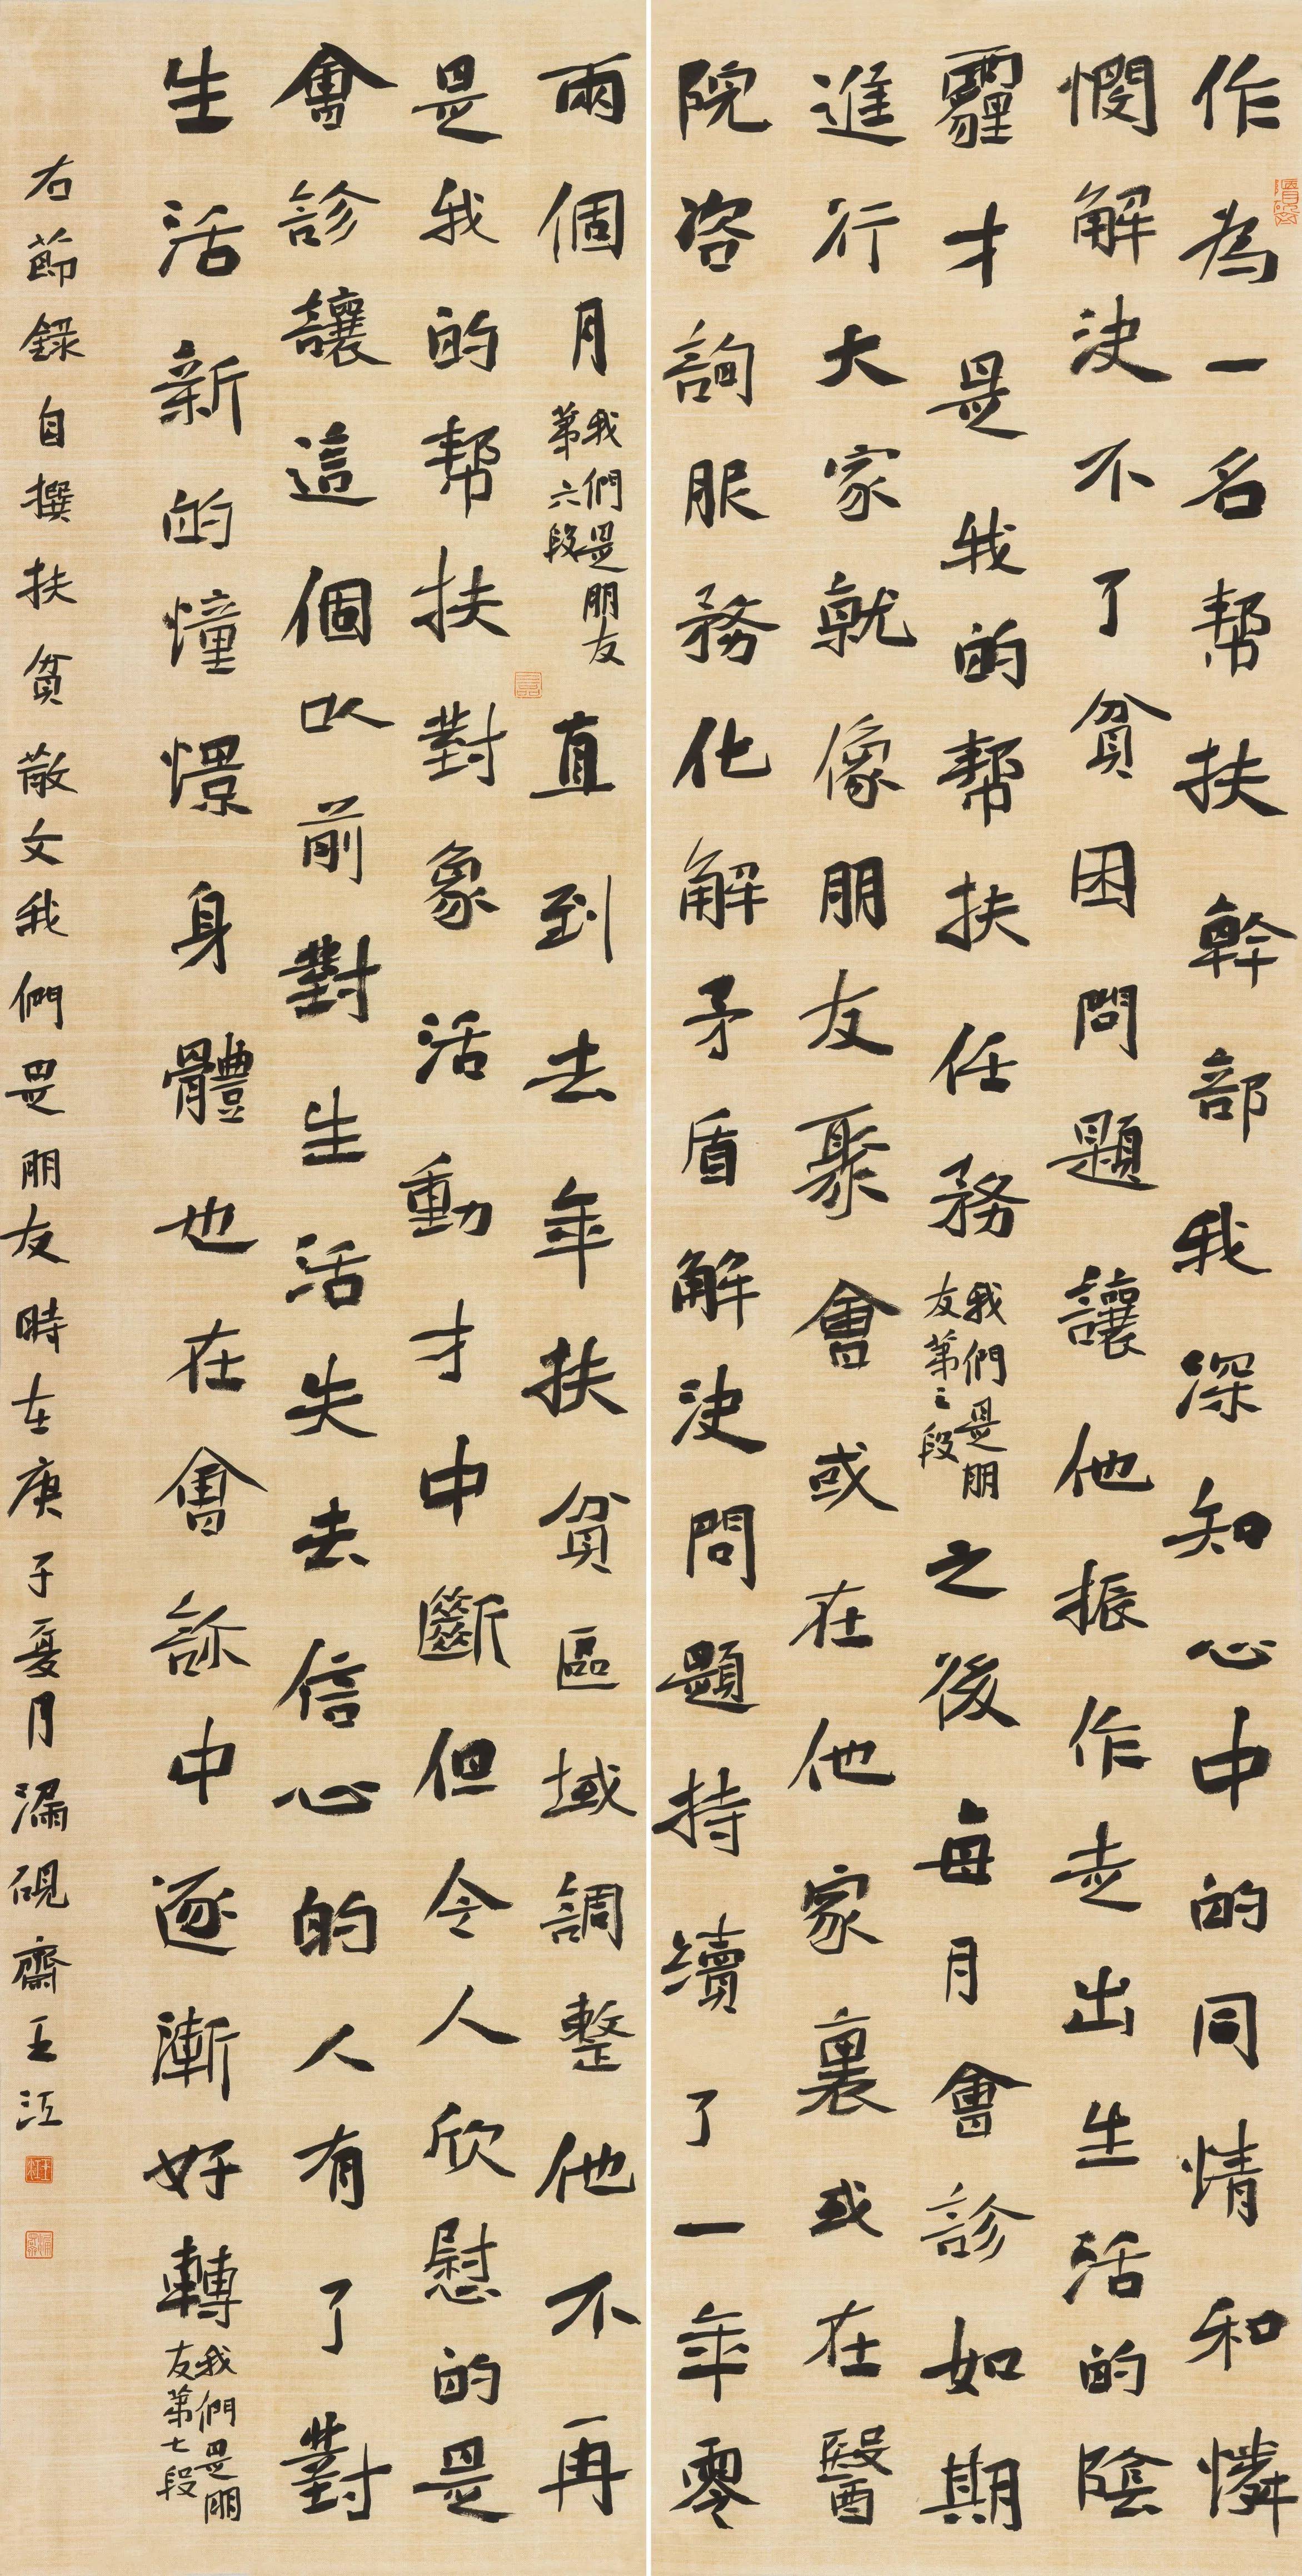 作為一名帮扶幹部我深知心中的同情和憐
憫解解決不了貧困問題讓他振作走出生活的陰
霾才是我的帮扶任務
我們是朋
友第三段
之後每月會診如期
進行大家就像朋友聚會或在他家裏或在醫
院咨詢服務化解矛盾解決問題持續了一年零
兩個月
我們是朋友
第六段
直到去年扶貧區域調整他不再
是我的帮扶對象活動才中斷但令人欣慰的是
會診讓這個以前對生活失去信心的人有了對
生活新的憧憬身體也在會診中逐漸好轉
我們是朋
友第七段
右節錄自撰扶貧散文我們是朋友時在庚子夏月漏硯齋王江